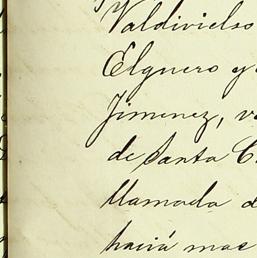 Valdivielso
Elguero y
Jimenez, v
de Santa C
llamada d
hacia mas